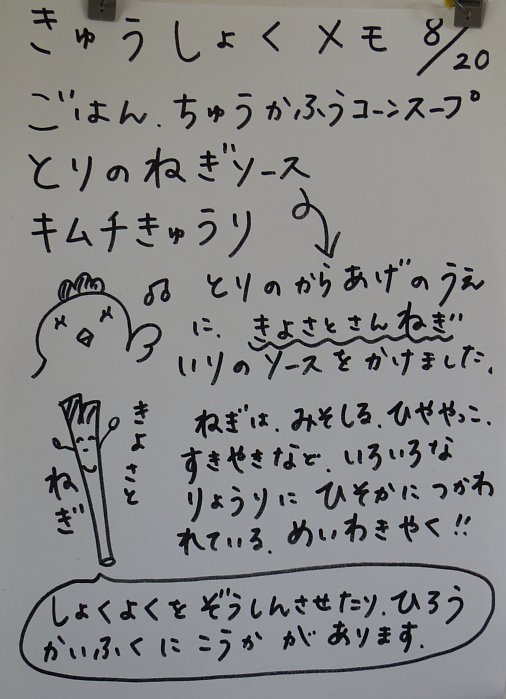 きゅうしょくメモ 8/20
ごはん、ちゅうかふうコーンスープ
とりのねぎソース
キムチきゅうり
とりのからあげのうえ
に、きよさとさんねぎ
いりのソースをかけました。
きよさと
ねぎ
ねぎは、みそしる、ひややっこ、
すきやきなど、いろいろな
りょうりにひそかにつかわ
れている、めいわきやく!!
しょくよくをぞうしんさせたり、ひろう
かいふくにこうかがあります。